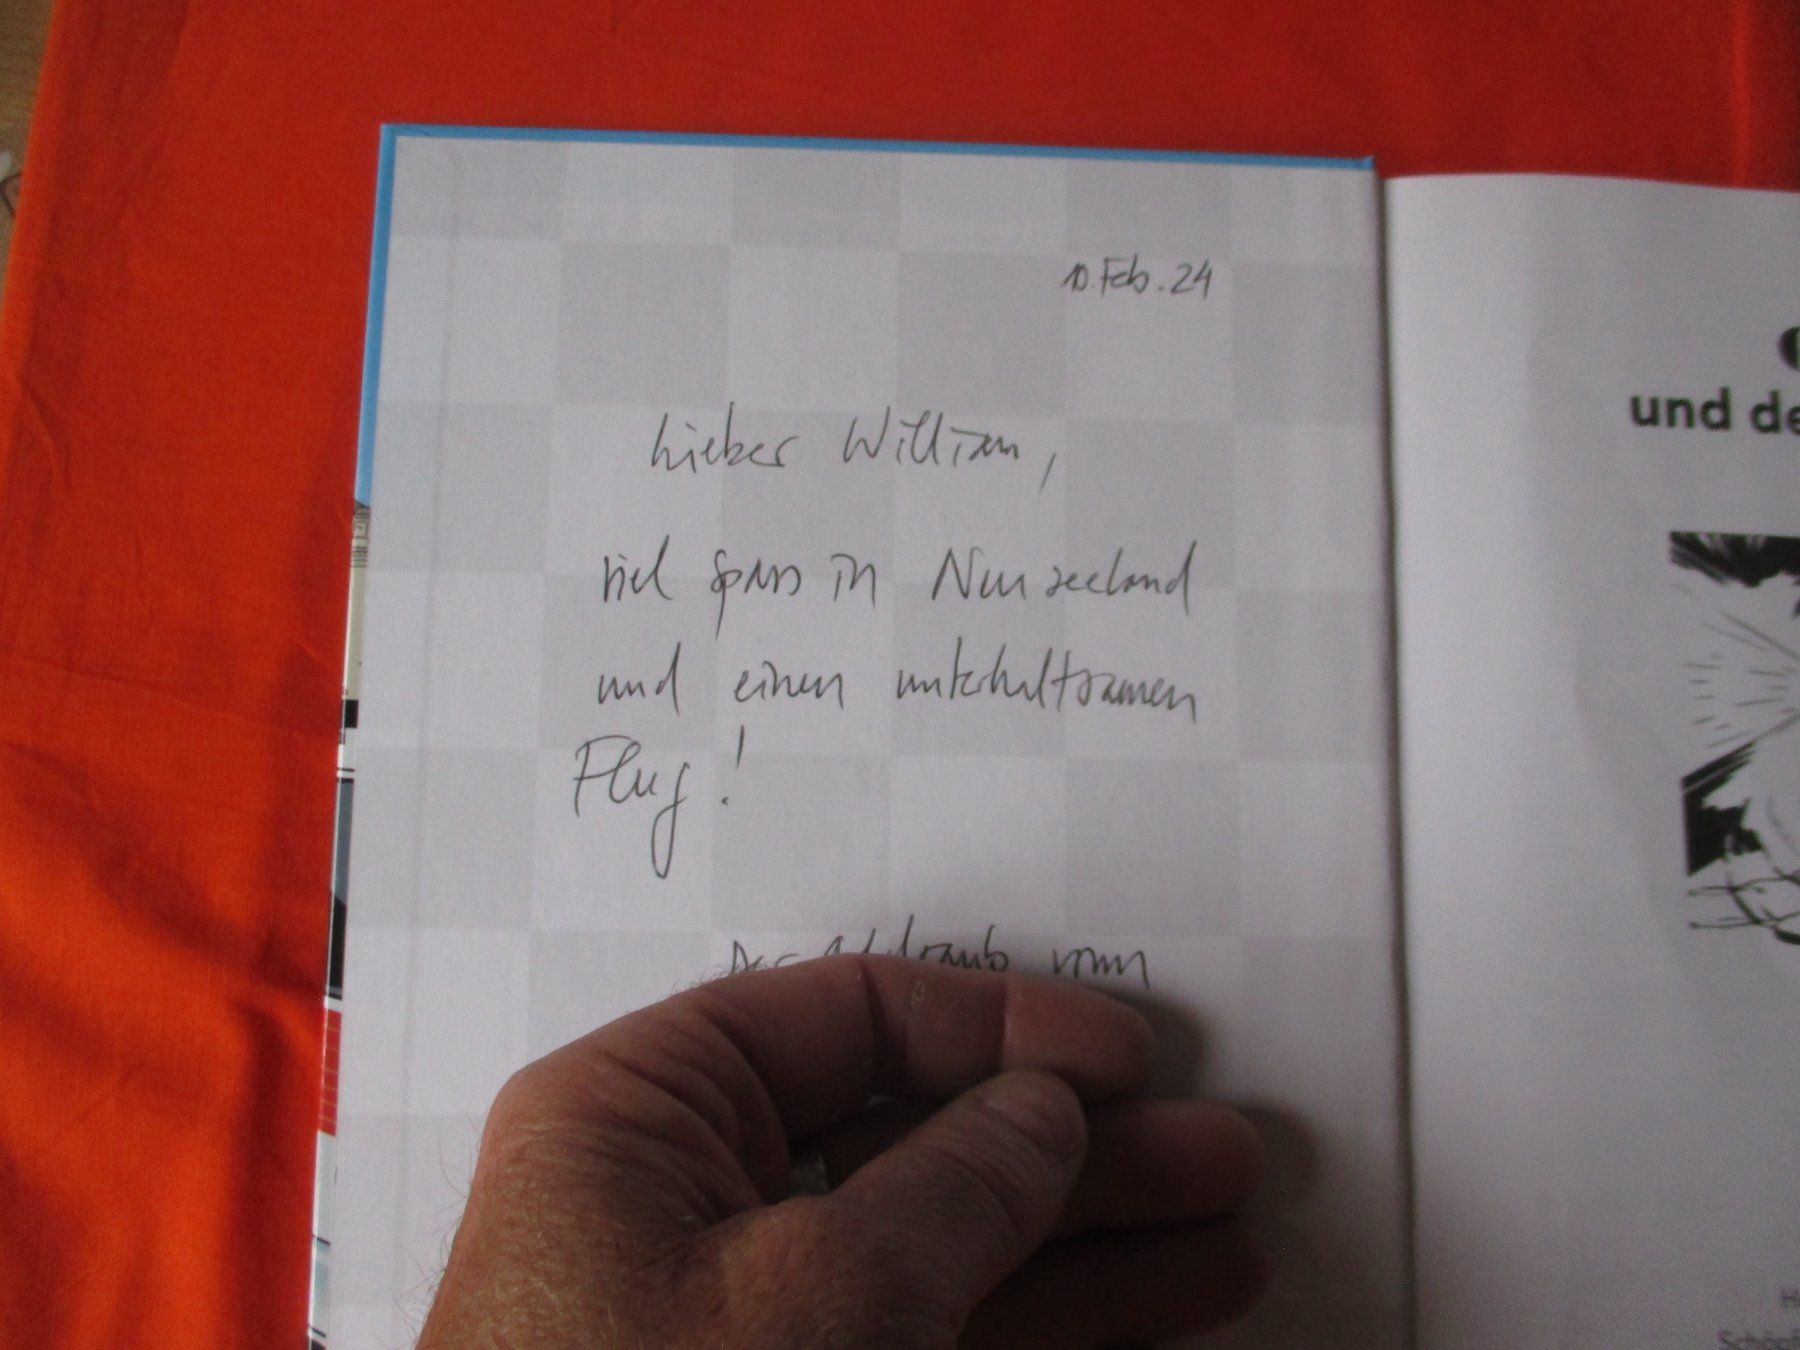 10. Feb. 24
Lieber William,
viel Spass in Neuseeland
und einen unterhaltsamen
Flug!
Der vom
und de